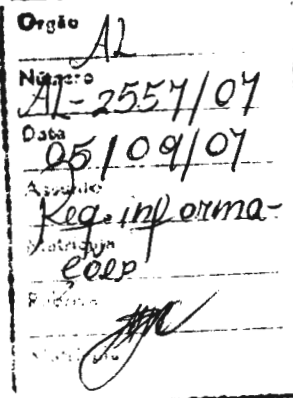 Orgão
AL
Número
AL-2557/07
Data
05/09/07
Assunto
Req. informa-
ções
Rubrica